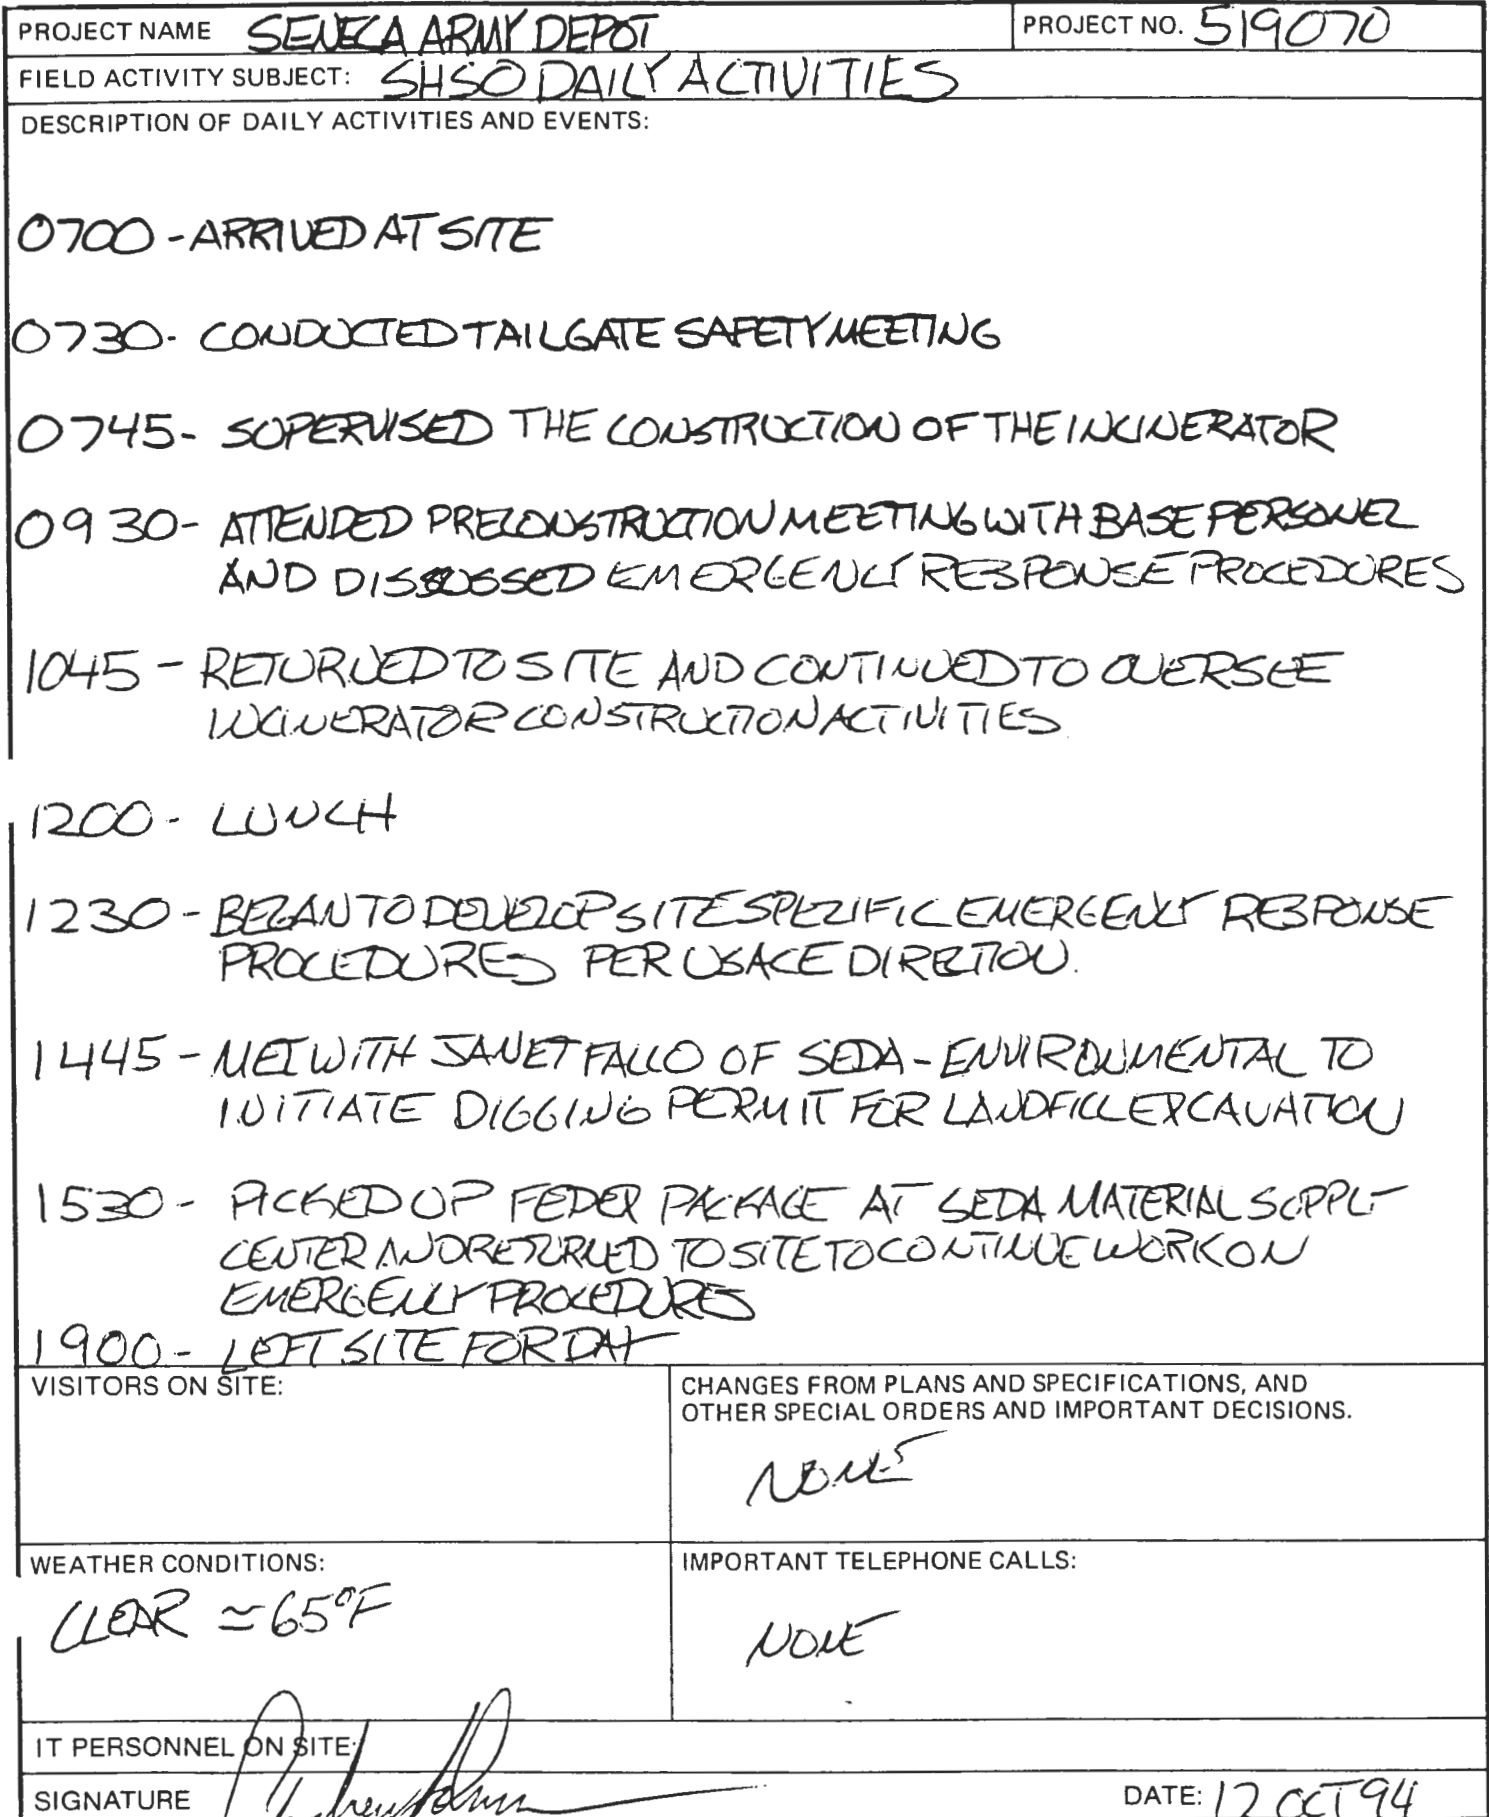 PROJECT NAME SENECA ARMY DEPOT PROJECT NO. 519070
FIELD ACTIVITY SUBJECT: SHSO DAILY ACTIVITIES
DESCRIPTION OF DAILY ACTIVITIES AND EVENTS:
0700 - ARRIVED AT SITE
0730 - CONDUCTED TAILGATE SAFETY MEETING
0745 - SUPERVISED THE CONSTRUCTION OF THE INCINERATOR
0930 - ATTENDED PRECONSTRUCTION MEETING WITH BASE PERSONEL
AND DISCUSSED EMERGENCY RESPONSE PROCEDURES
1045 - RETURNED TO SITE AND CONTINUED TO OVERSEE
INCINERATOR CONSTRUCTION ACTIVITIES
1200 - LUNCH
1230 - BEGAN TO DEVELOP SITE SPECIFIC EMERGENCY RESPONSE
PROCEDURES PER USACE DIRECTION.
1445 - MET WITH JANET FALLO OF SEDA - ENVIRONMENTAL TO
INITIATE DIGGING PERMIT FOR LANDFILL EXCAVATION
1530 - PICKED UP FEDEX PACKAGE AT SEDA MATERIAL SUPPLY
CENTER AND RETURNED TO SITE TO CONTINUE WORK ON
EMERGENCY PROCEDURES
1900 - LEFT SITE FOR DAY
VISITORS ON SITE:
CHANGES FROM PLANS AND SPECIFICATIONS, AND
OTHER SPECIAL ORDERS AND IMPORTANT DECISIONS.
NONE
WEATHER CONDITIONS:
CLEAR ≃ 65°F
IMPORTANT TELEPHONE CALLS:
NONE
IT PERSONNEL ON SITE:
SIGNATURE DATE: 12 OCT 94